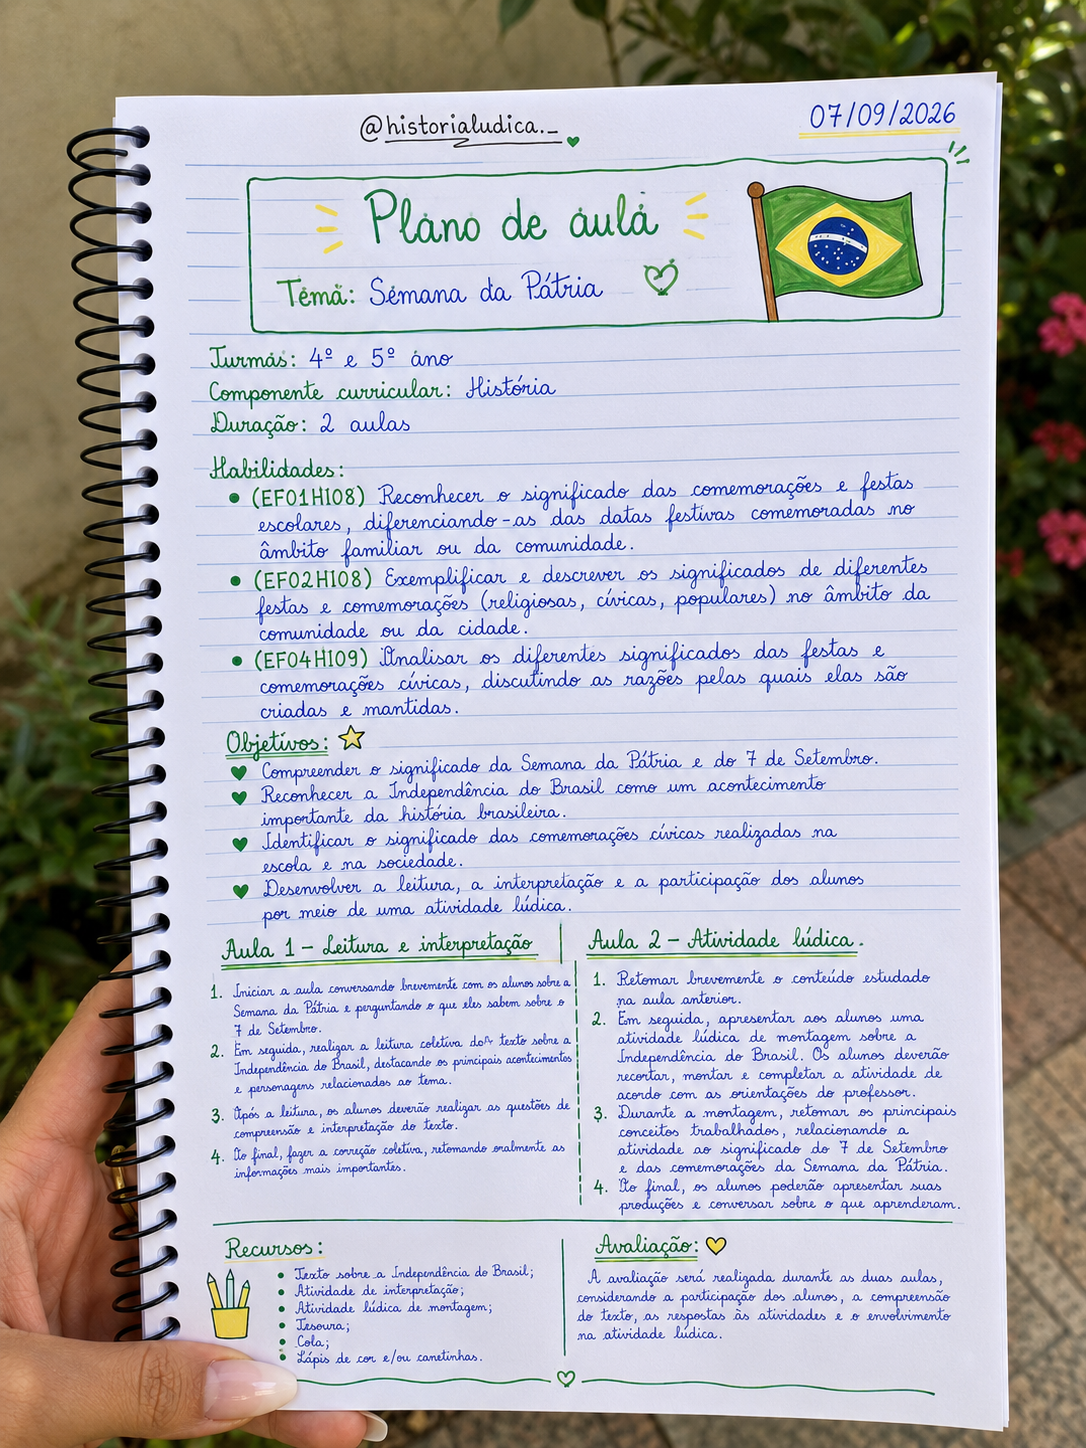 @historialudica._
07/09/2026
Plano de aula
Tema: Semana da Pátria
Turmas: 4º e 5º ano
Componente curricular: História
Duração: 2 aulas
Habilidades:
• (EF01HI08) Reconhecer o significado das comemorações e festas
escolares, diferenciando-as das datas festivas comemoradas no
âmbito familiar ou da comunidade.
• (EF02HI08) Exemplificar e descrever os significados de diferentes
festas e comemorações (religiosas, cívicas, populares) no âmbito da
comunidade ou da cidade.
• (EF04HI09) Analisar os diferentes significados das festas e
comemorações cívicas, discutindo as razões pelas quais elas são
criadas e mantidas.
Objetivos:
Compreender o significado da Semana da Pátria e do 7 de Setembro.
Reconhecer a Independência do Brasil como um acontecimento
importante da história brasileira.
Identificar o significado das comemorações cívicas realizadas na
escola e na sociedade.
Desenvolver a leitura, a interpretação e a participação dos alunos
por meio de uma atividade lúdica.
Aula 1 – Leitura e interpretação
1. Iniciar a aula conversando brevemente com os alunos sobre a
Semana da Pátria e perguntando o que eles sabem sobre o
7 de Setembro.
2. Em seguida, realizar a leitura coletiva do texto sobre a
Independência do Brasil, destacando os principais acontecimentos
e personagens relacionados ao tema.
3. Após a leitura, os alunos deverão realizar as questões de
compreensão e interpretação do texto.
4. Ao final, fazer a correção coletiva, retomando oralmente as
informações mais importantes.
Aula 2 – Atividade lúdica.
1. Retomar brevemente o conteúdo estudado
na aula anterior.
2. Em seguida, apresentar aos alunos uma
atividade lúdica de montagem sobre a
Independência do Brasil. Os alunos deverão
recortar, montar e completar a atividade de
acordo com as orientações do professor.
3. Durante a montagem, retomar os principais
conceitos trabalhados, relacionando a
atividade ao significado do 7 de Setembro
e das comemorações da Semana da Pátria.
4. Ao final, os alunos poderão apresentar suas
produções e conversar sobre o que aprenderam.
Recursos:
• Texto sobre a Independência do Brasil;
• Atividade de interpretação;
• Atividade lúdica de montagem;
• Tesoura;
• Cola;
• Lápis de cor e/ou canetinhas.
Avaliação:
A avaliação será realizada durante as duas aulas,
considerando a participação dos alunos, a compreensão
do texto, as respostas às atividades e o envolvimento
na atividade lúdica.